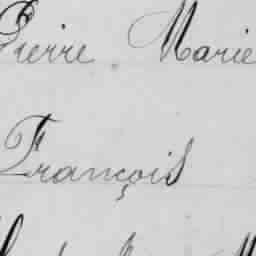 Pierre Marie
François